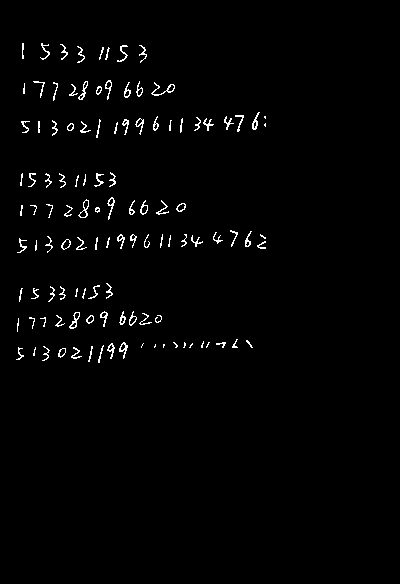 15331153
17728096620
51302119961134476
15331153
17728096620
513021199611344762
15331153
17728096620
513021199